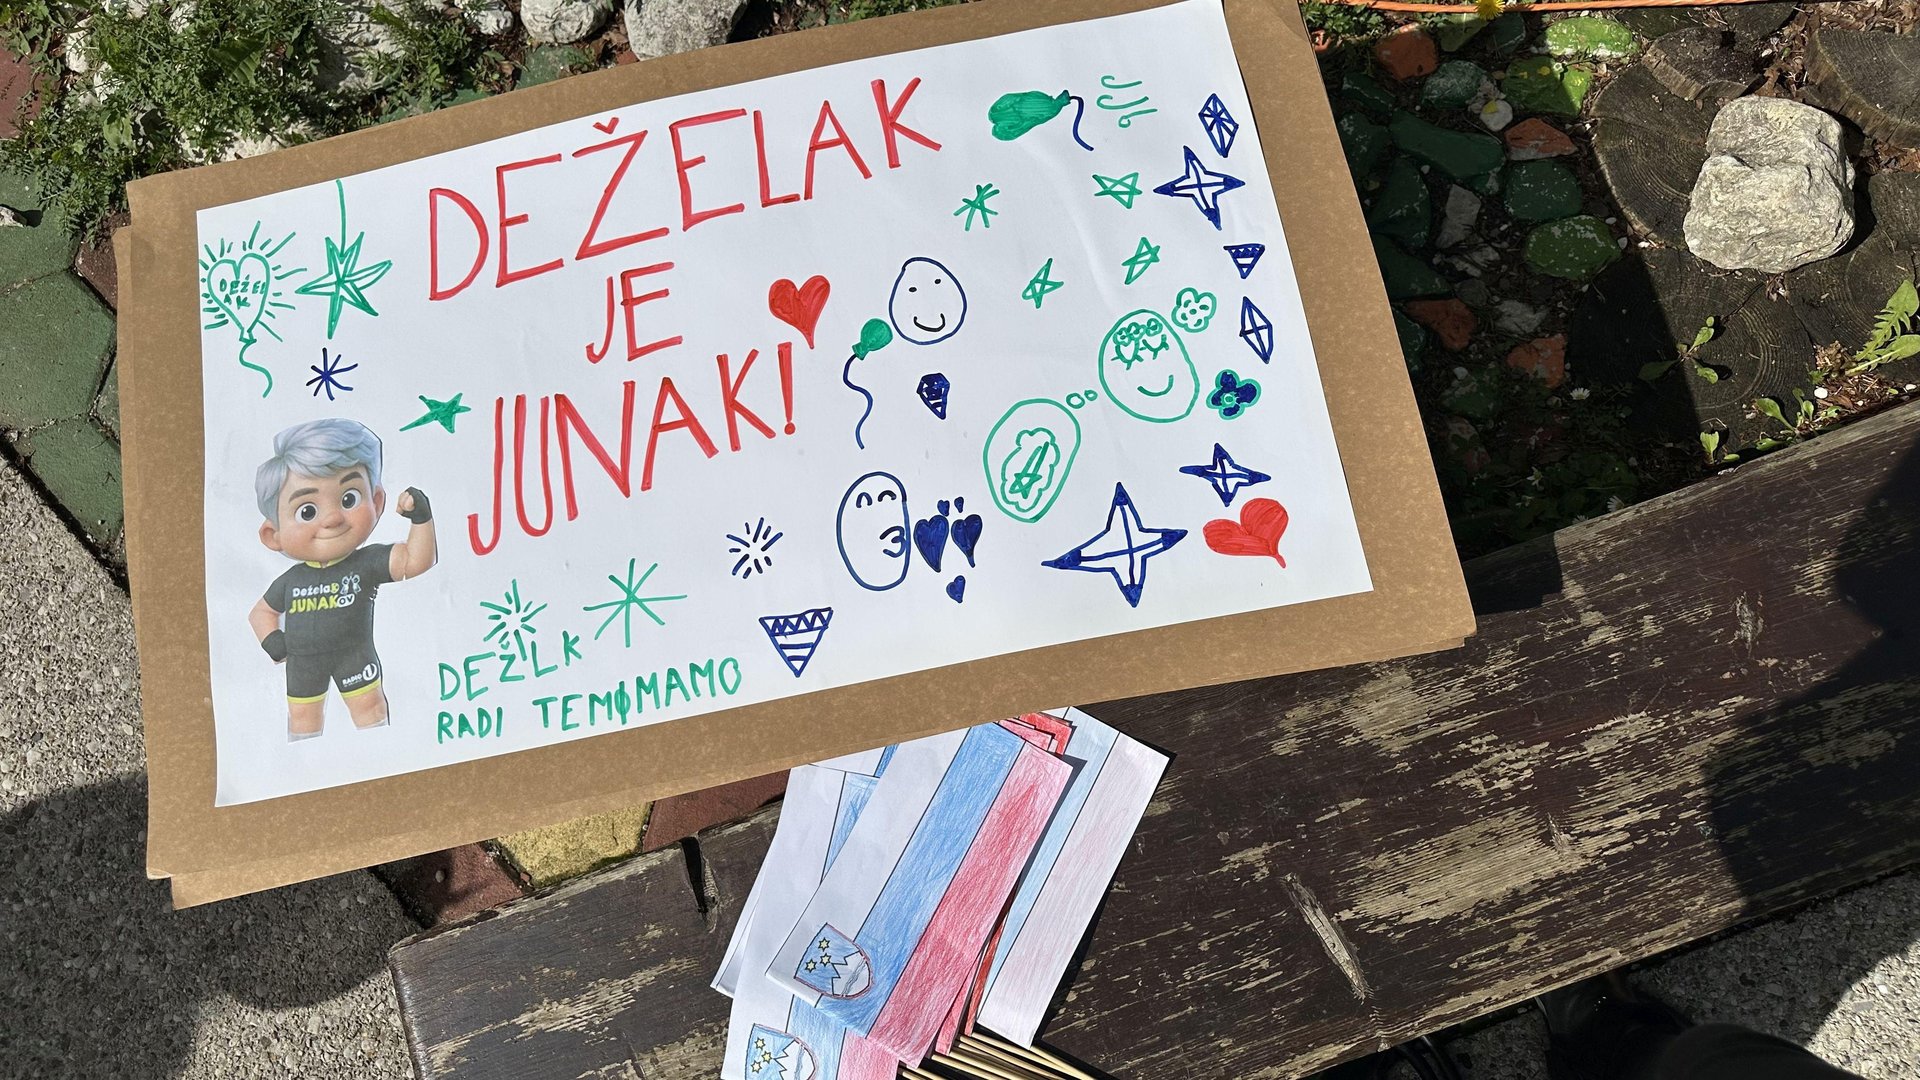 DEŽELAK
JE
JUNAK!
DEŽEL
AK
Deželak
JUNAKOV
RADIO 1
DEŽLK
RADI TEMOMAMO